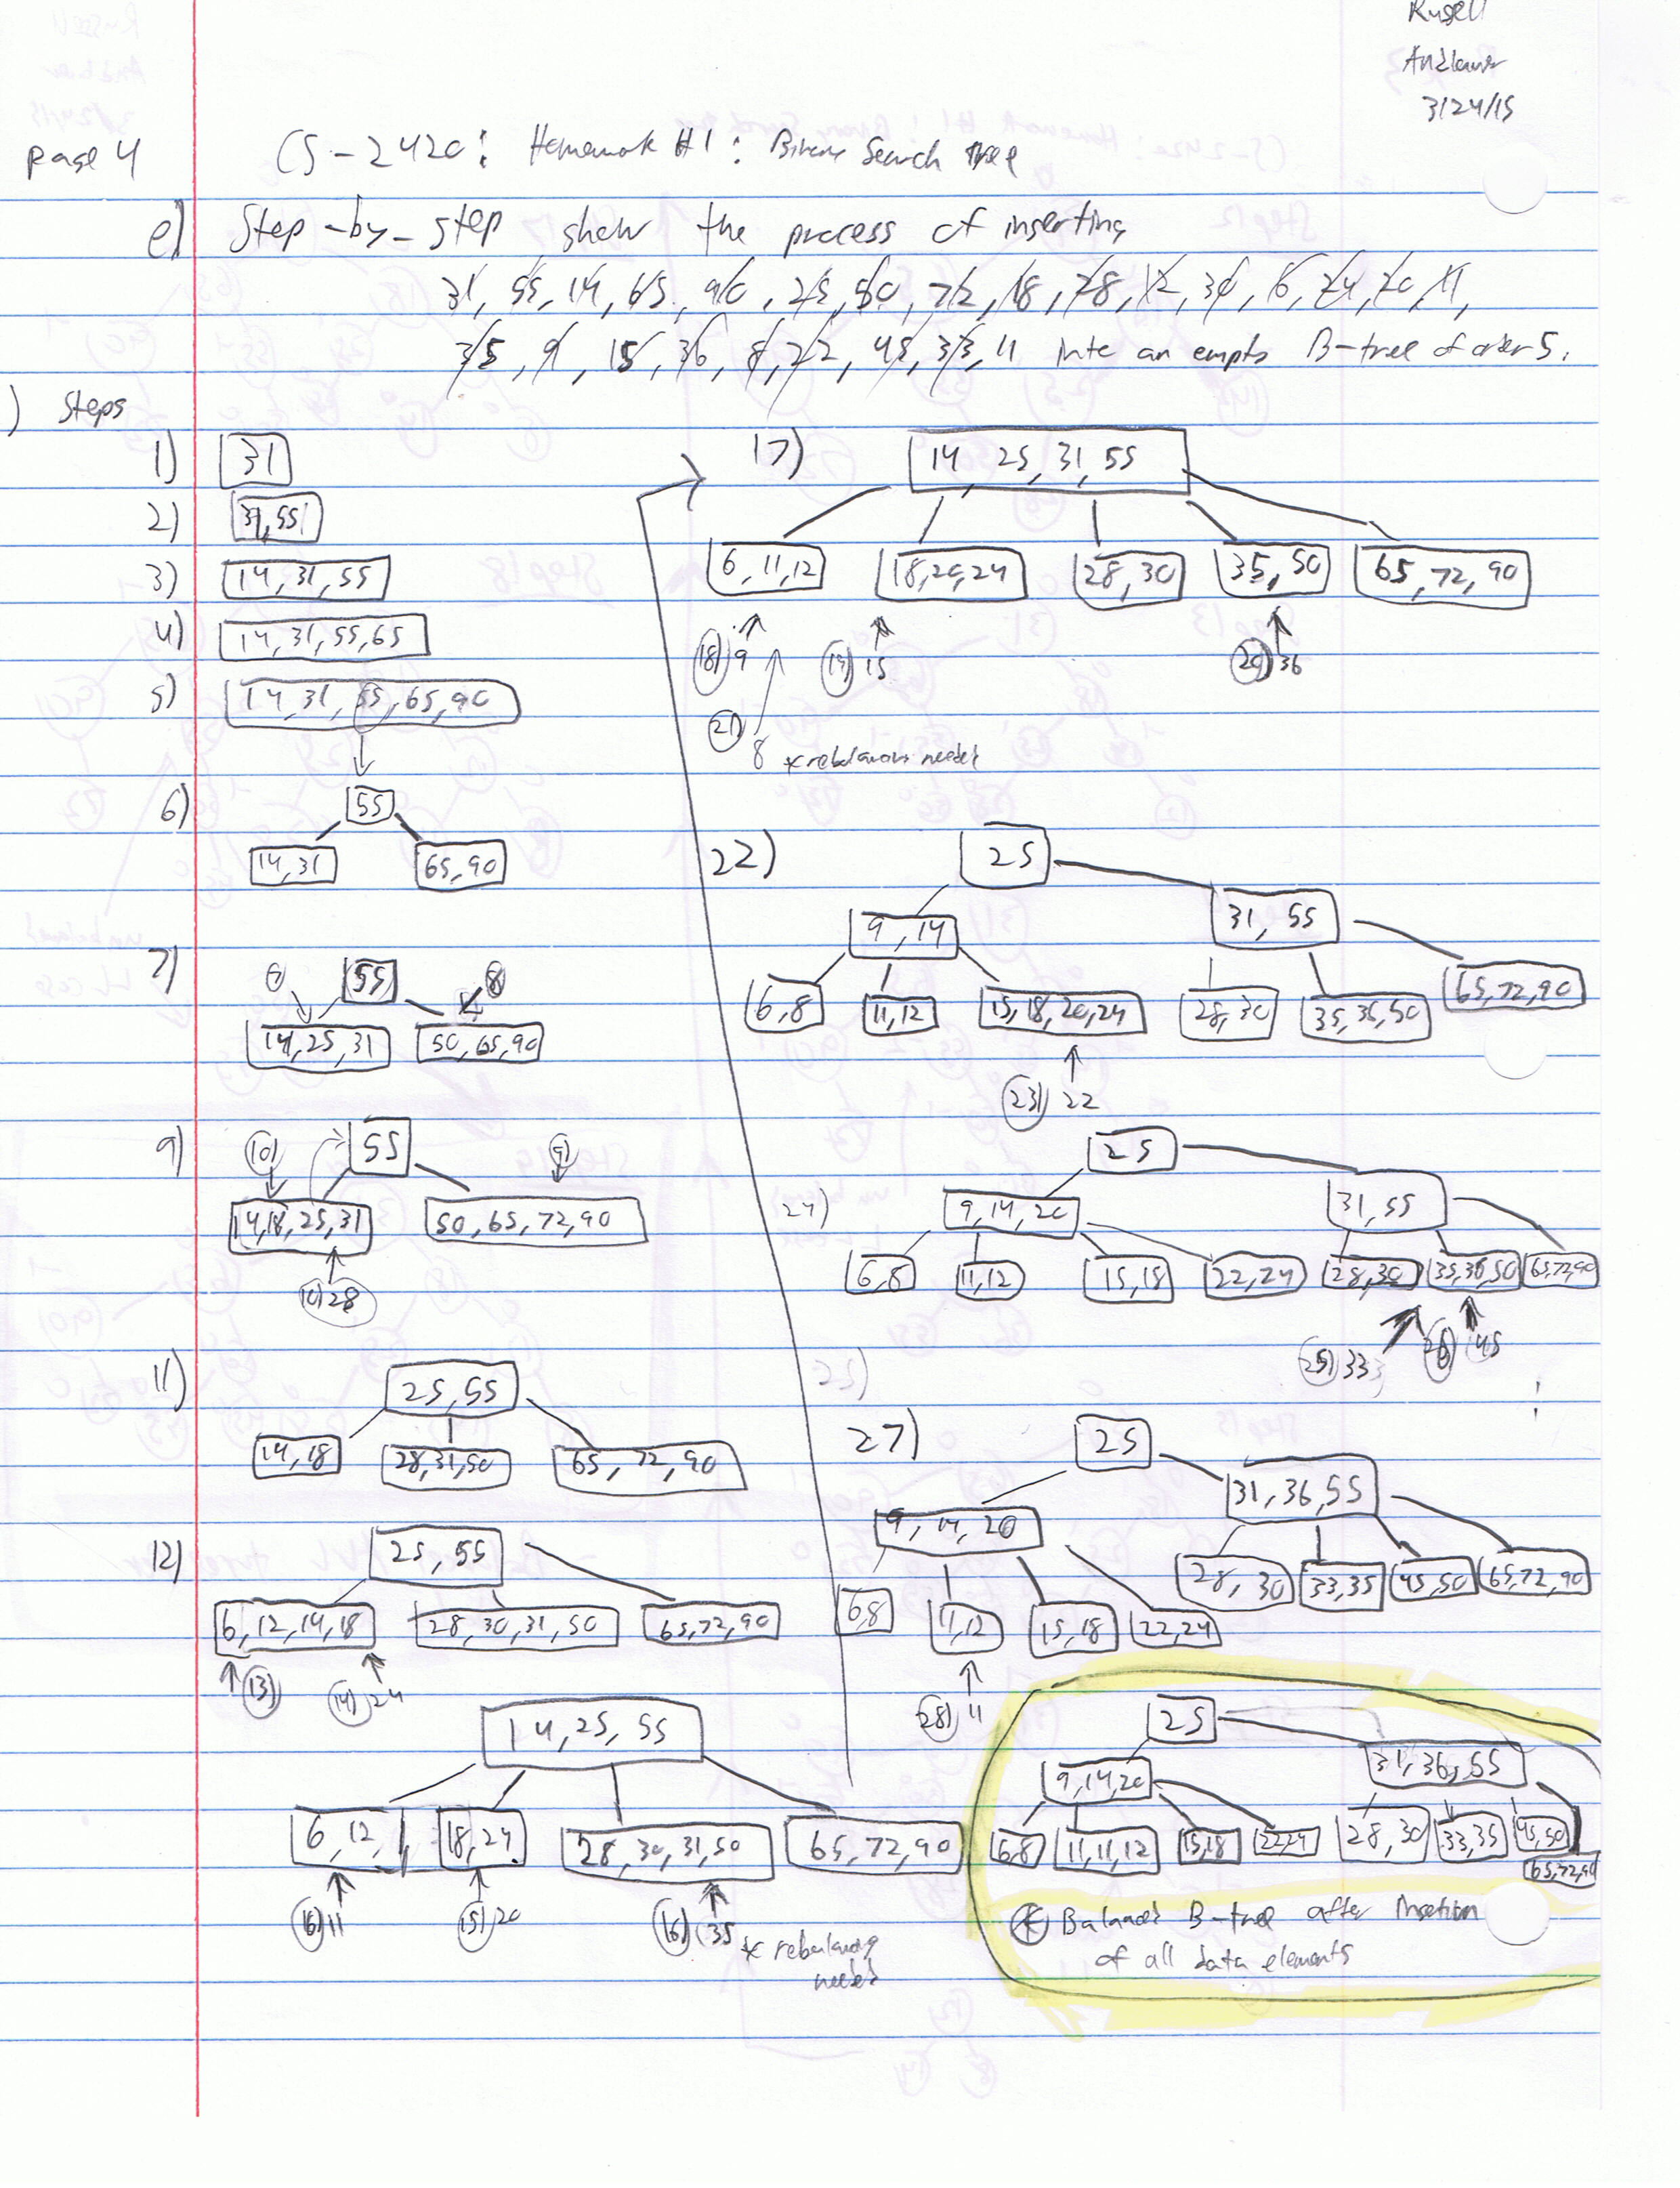 Rusell
Andlauer
3/24/15
page 4
CS-2420: Homework #1: Binary Search Tree
e) Step-by-step show the process of inserting
31, 55, 14, 65, 90, 25, 50, 72, 18, 28, 12, 30, 6, 24, 20, 11,
35, 9, 15, 36, 8, 22, 45, 33, 11 into an empty B-tree of order 5.
) Steps
1) 31
2) 31, 55
3) 14, 31, 55
4) 14, 31, 55, 65
5) 14, 31, 55, 65, 90
6) 55
14, 31 65, 90
7) 55
7 8
14, 25, 31 50, 65, 90
9) 55
10) 9)
14, 18, 25, 31 50, 65, 72, 90
10) 28
11) 25, 55
14, 18 28, 31, 50 65, 72, 90
12) 25, 55
6, 12, 14, 18 28, 30, 31, 50 65, 72, 90
13) 14) 24
14, 25, 55
6, 12, 18, 24 28, 30, 31, 50 65, 72, 90
16) 11 15) 20 16) 35 * rebalancing
needed
17) 14 25, 31, 55
6, 11, 12 18, 20, 24 28, 30 35, 50 65, 72, 90
18) 9 19) 15 20) 36
21) 8 * rebalancing needed
22) 25
9, 14 31, 55
6, 8 11, 12 15, 18, 20, 24 28, 30 35, 36, 50 65, 72, 90
23) 22
24) 25
9, 14, 20 31, 55
6, 8 11, 12 15, 18 22, 24 28, 30 35, 36, 50 65, 72, 90
25) 33 26) 45
25)
27) 25
9, 14, 20 31, 36, 55
6, 8 11, 12 15, 18 22, 24 28, 30 33, 35 45, 50 65, 72, 90
28) 11
25
9, 14, 20 31, 36, 55
6, 8 11, 11, 12 15, 18 22, 24 28, 30 33, 35 45, 50
65, 72, 90
* Balanced B-tree after insertion
of all data elements